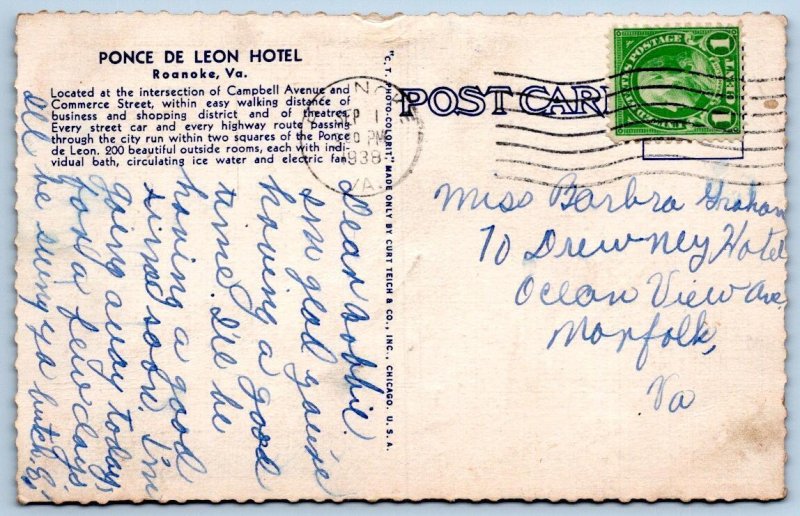 PONCE DE LEON HOTEL
Roanoke, Va.
Located at the intersection of Campbell Avenue and
Commerce Street, within easy walking distance of
business and shopping district and of theatres.
Every street car and every highway route passing
through the city run within two squares of the Ponce
de Leon. 200 beautiful outside rooms, each with indi-
vidual bath, circulating ice water and electric fan.
Dear Bobbie.
I'm glad you're
having a good
time. I'll be
having a good
time soon. I'm
going away today
for a few days.
I'll be seeing ya
"C. T. PHOTO-COLORIT" MADE ONLY BY CURT TEICH & CO., INC., CHICAGO. U. S. A.
POST CARD
1938
VA.
1 CENT 1
Miss Barbra Graham
70 Drewney Hotel
Ocean View Ave.
Norfolk,
Va